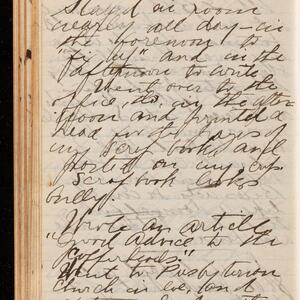 Stayed in room
nearly all day - in
the forenoon to
"fix up" and in the
afternoon to write.
Went over to the
office, in the after
noon and printed a
head for the pages of
my scrap book and
posted on my
Scrap book looks
bully.
Wrote an article
"Good Advice to the
Went to Presbyterian
Church in eve. and